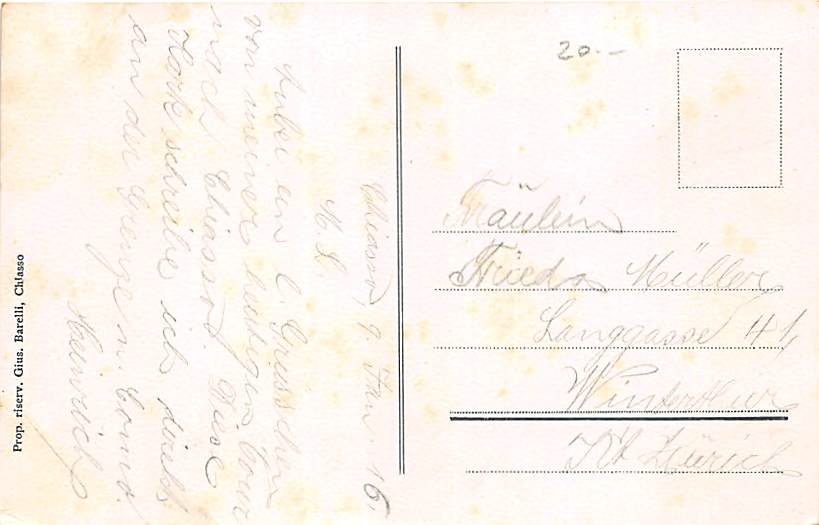 Chiasso, 9. Jan. 16.
M. L.
Anbei ein l. Grüsschen
von meiner heutigen Tour
nach Chiasso. Diese
Karte schreibe ich direkt
an der Grenze n. Como.
Heinrich
20.-
Fräulein
Frieda Müller
Langgasse 41,
Winterthur
Kt. Zürich
Prop. riserv. Gius. Barelli, Chiasso